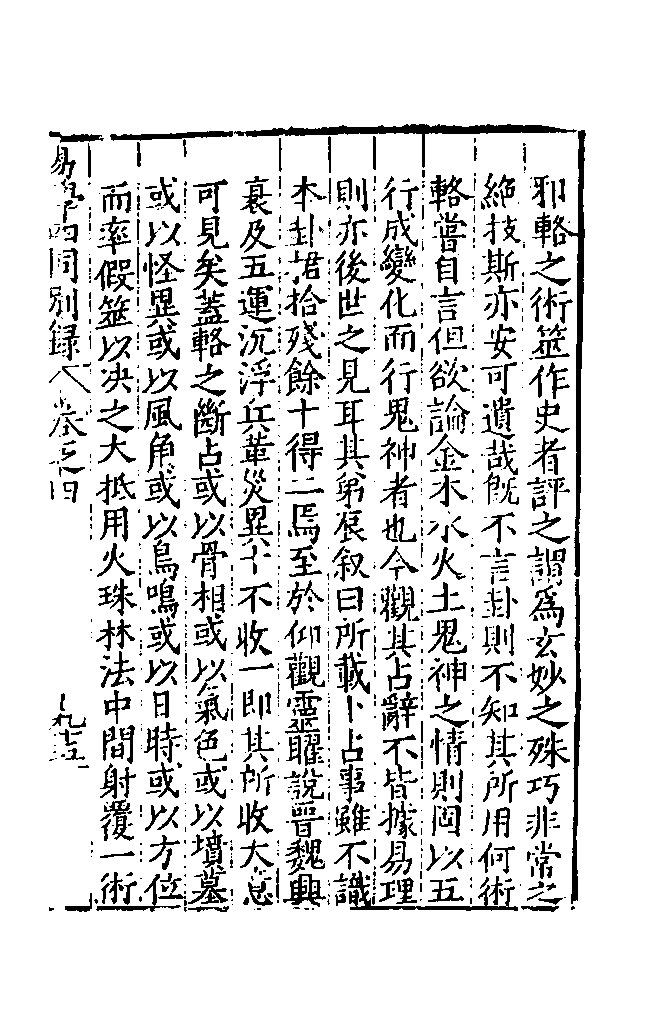 邪輅之術筮作史者評之謂爲玄妙之殊巧非常之
絶技斯亦安可遺哉旣不言卦則不知其所用何術
輅嘗自言但欲論金木水火土鬼神之情則固以五
行成變化而行鬼神者也今觀其占辭不皆據易理
則亦後世之見耳其弟辰叙曰所載卜占事雖不識
本卦捃拾殘餘十得二焉至於仰觀靈曜說晉魏興
衰及五運沉浮兵革災異十不收一即其所收大意
可見矣蓋輅之斷占或以骨相或以氣色或以墳墓
或以怪異或以風角或以鳥鳴或以日時或以方位
而率假筮以决之大抵用火珠林法中間射覆一術
易學四同別録 卷之四 一九十五